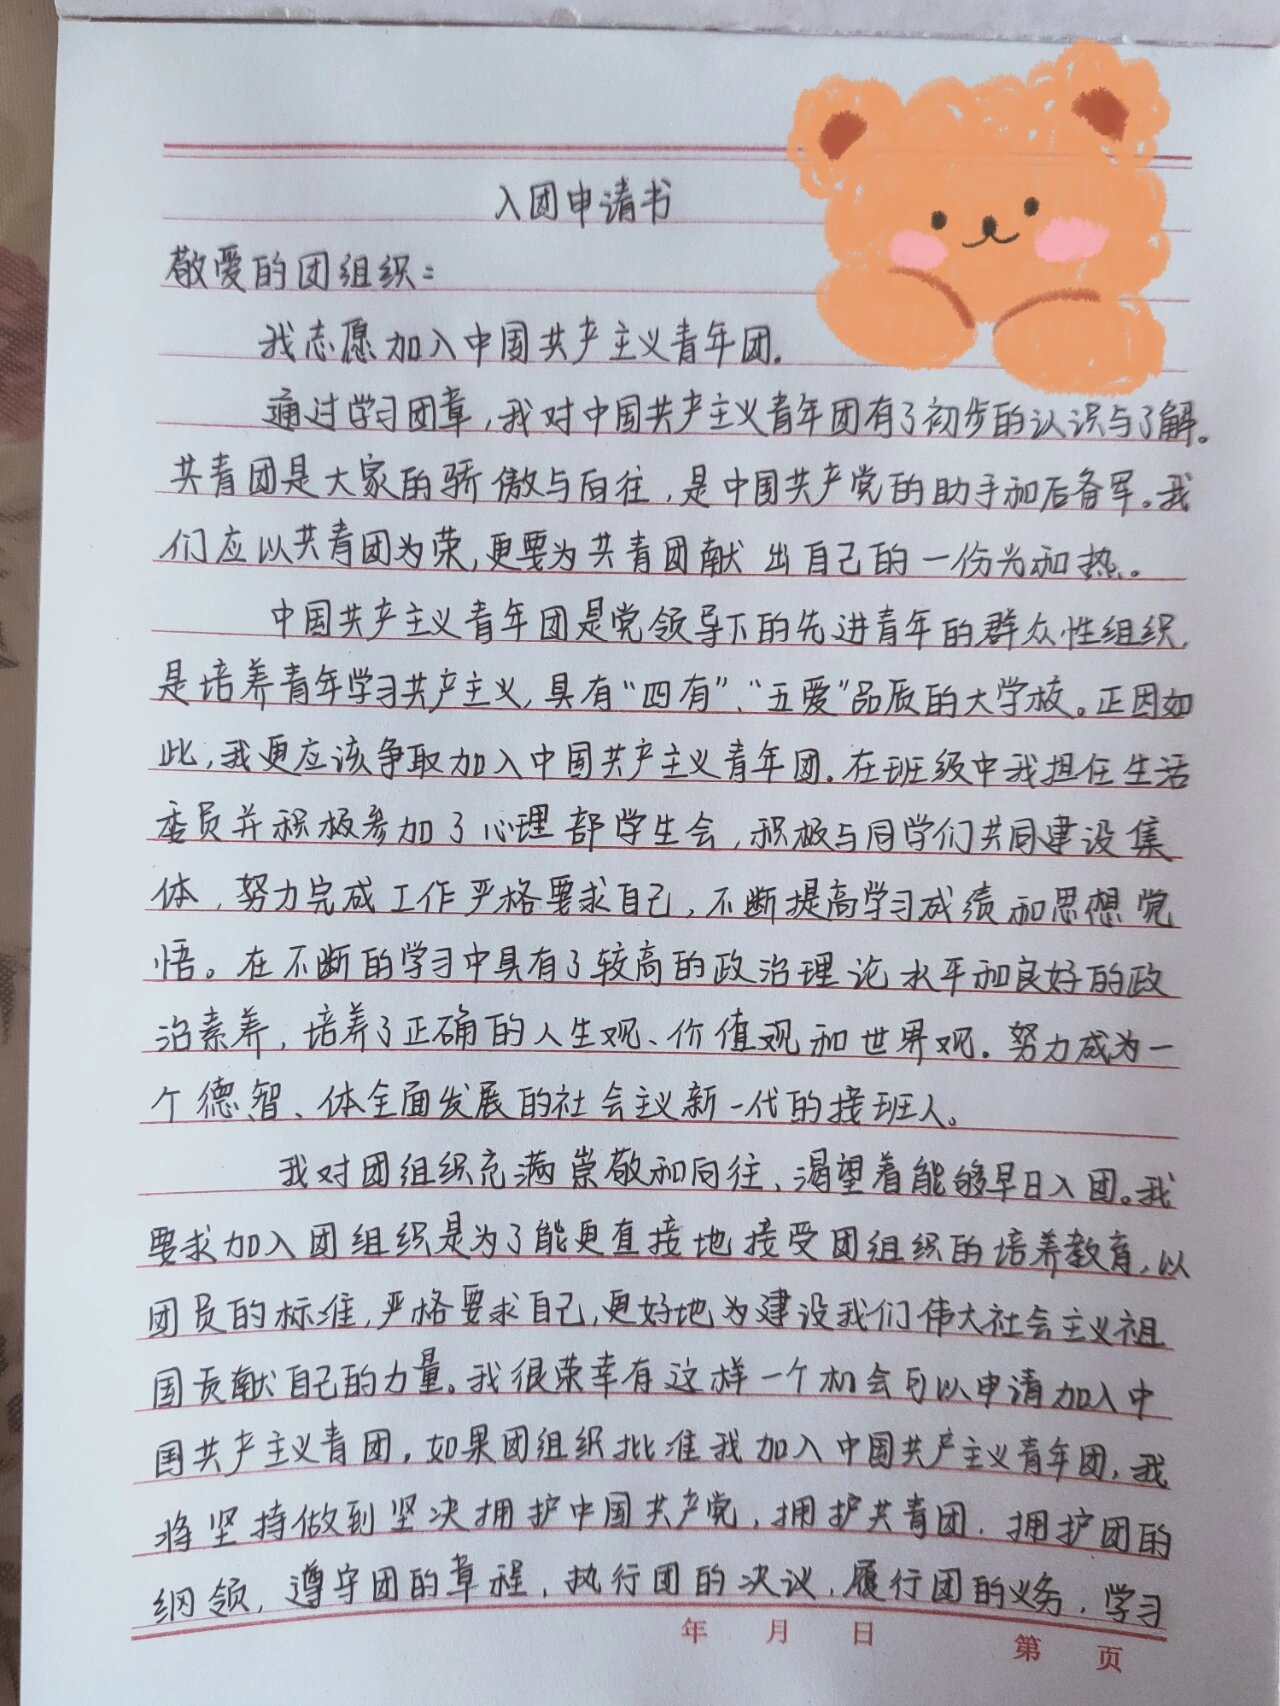 入团申请书
敬爱的团组织：
我志愿加入中国共产主义青年团.
通过学习团章，我对中国共产主义青年团有了初步的认识与了解。
共青团是大家的骄傲与向往，是中国共产党的助手和后备军。我
们应以共青团为荣，更要为共青团献出自己的一份光和热。
中国共产主义青年团是党领导下的先进青年的群众性组织，
是培养青年学习共产主义，具有“四有”、“五爱”品质的大学校。正因如
此，我更应该争取加入中国共产主义青年团.在班级中我担任生活
委员并积极参加了心理部学生会，积极与同学们共同建设集
体，努力完成工作严格要求自己，不断提高学习成绩和思想觉
悟。在不断的学习中具有了较高的政治理论水平和良好的政
治素养，培养了正确的人生观、价值观和世界观.努力成为一
个德智、体全面发展的社会主义新一代的接班人。
我对团组织充满崇敬和向往，渴望着能够早日入团。我
要求加入团组织是为了能更直接地接受团组织的培养教育，以
团员的标准，严格要求自己，更好地为建设我们伟大社会主义祖
国贡献自己的力量。我很荣幸有这样一个机会可以申请加入中
国共产主义青团，如果团组织批准我加入中国共产主义青年团，我
将坚持做到坚决拥护中国共产党，拥护共青团.拥护团的
纲领，遵守团的章程，执行团的决议，履行团的义务，学习
年 月 日 第 页